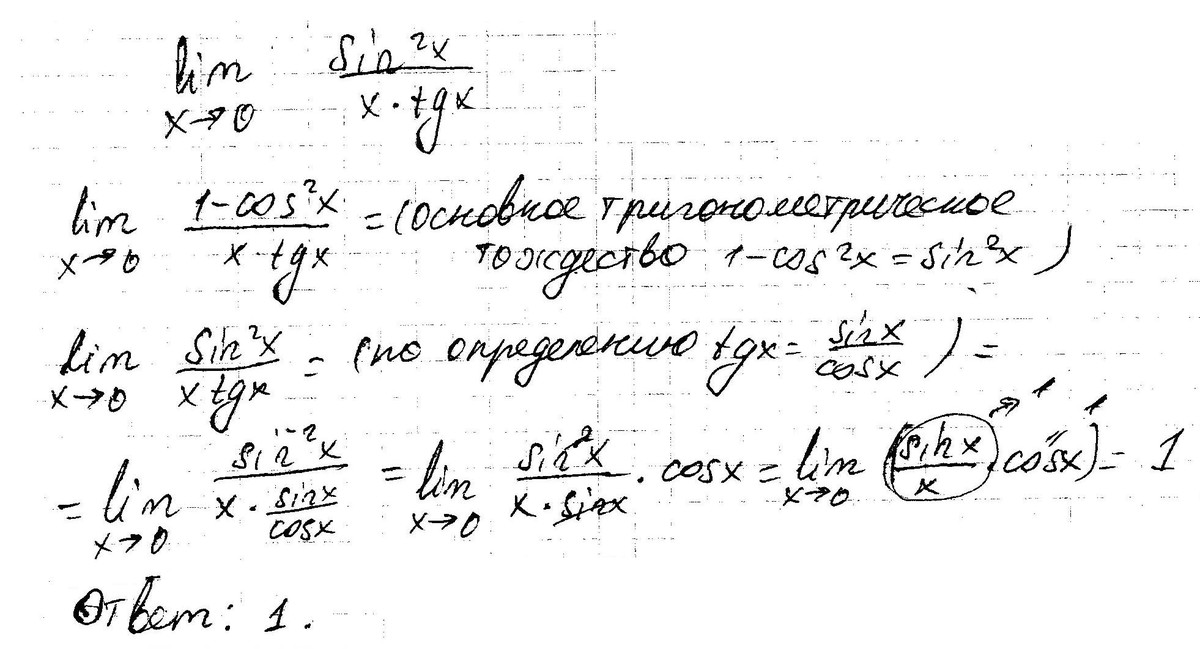 lim x→0 sin²x / (x · tgx)
lim x→0 (1-cos²x) / (x · tgx) = (основное тригонометрическое
тождество 1-cos²x = sin²x )
lim x→0 sin²x / (x tgx) = (по определению tgx = sinx / cosx ) =
= lim x→0 sin²x / (x · sinx / cosx) = lim x→0 sin²x / (x · sinx) · cosx = lim x→0 (sinx / x → 1 · cosx 1) = 1
Ответ: 1.